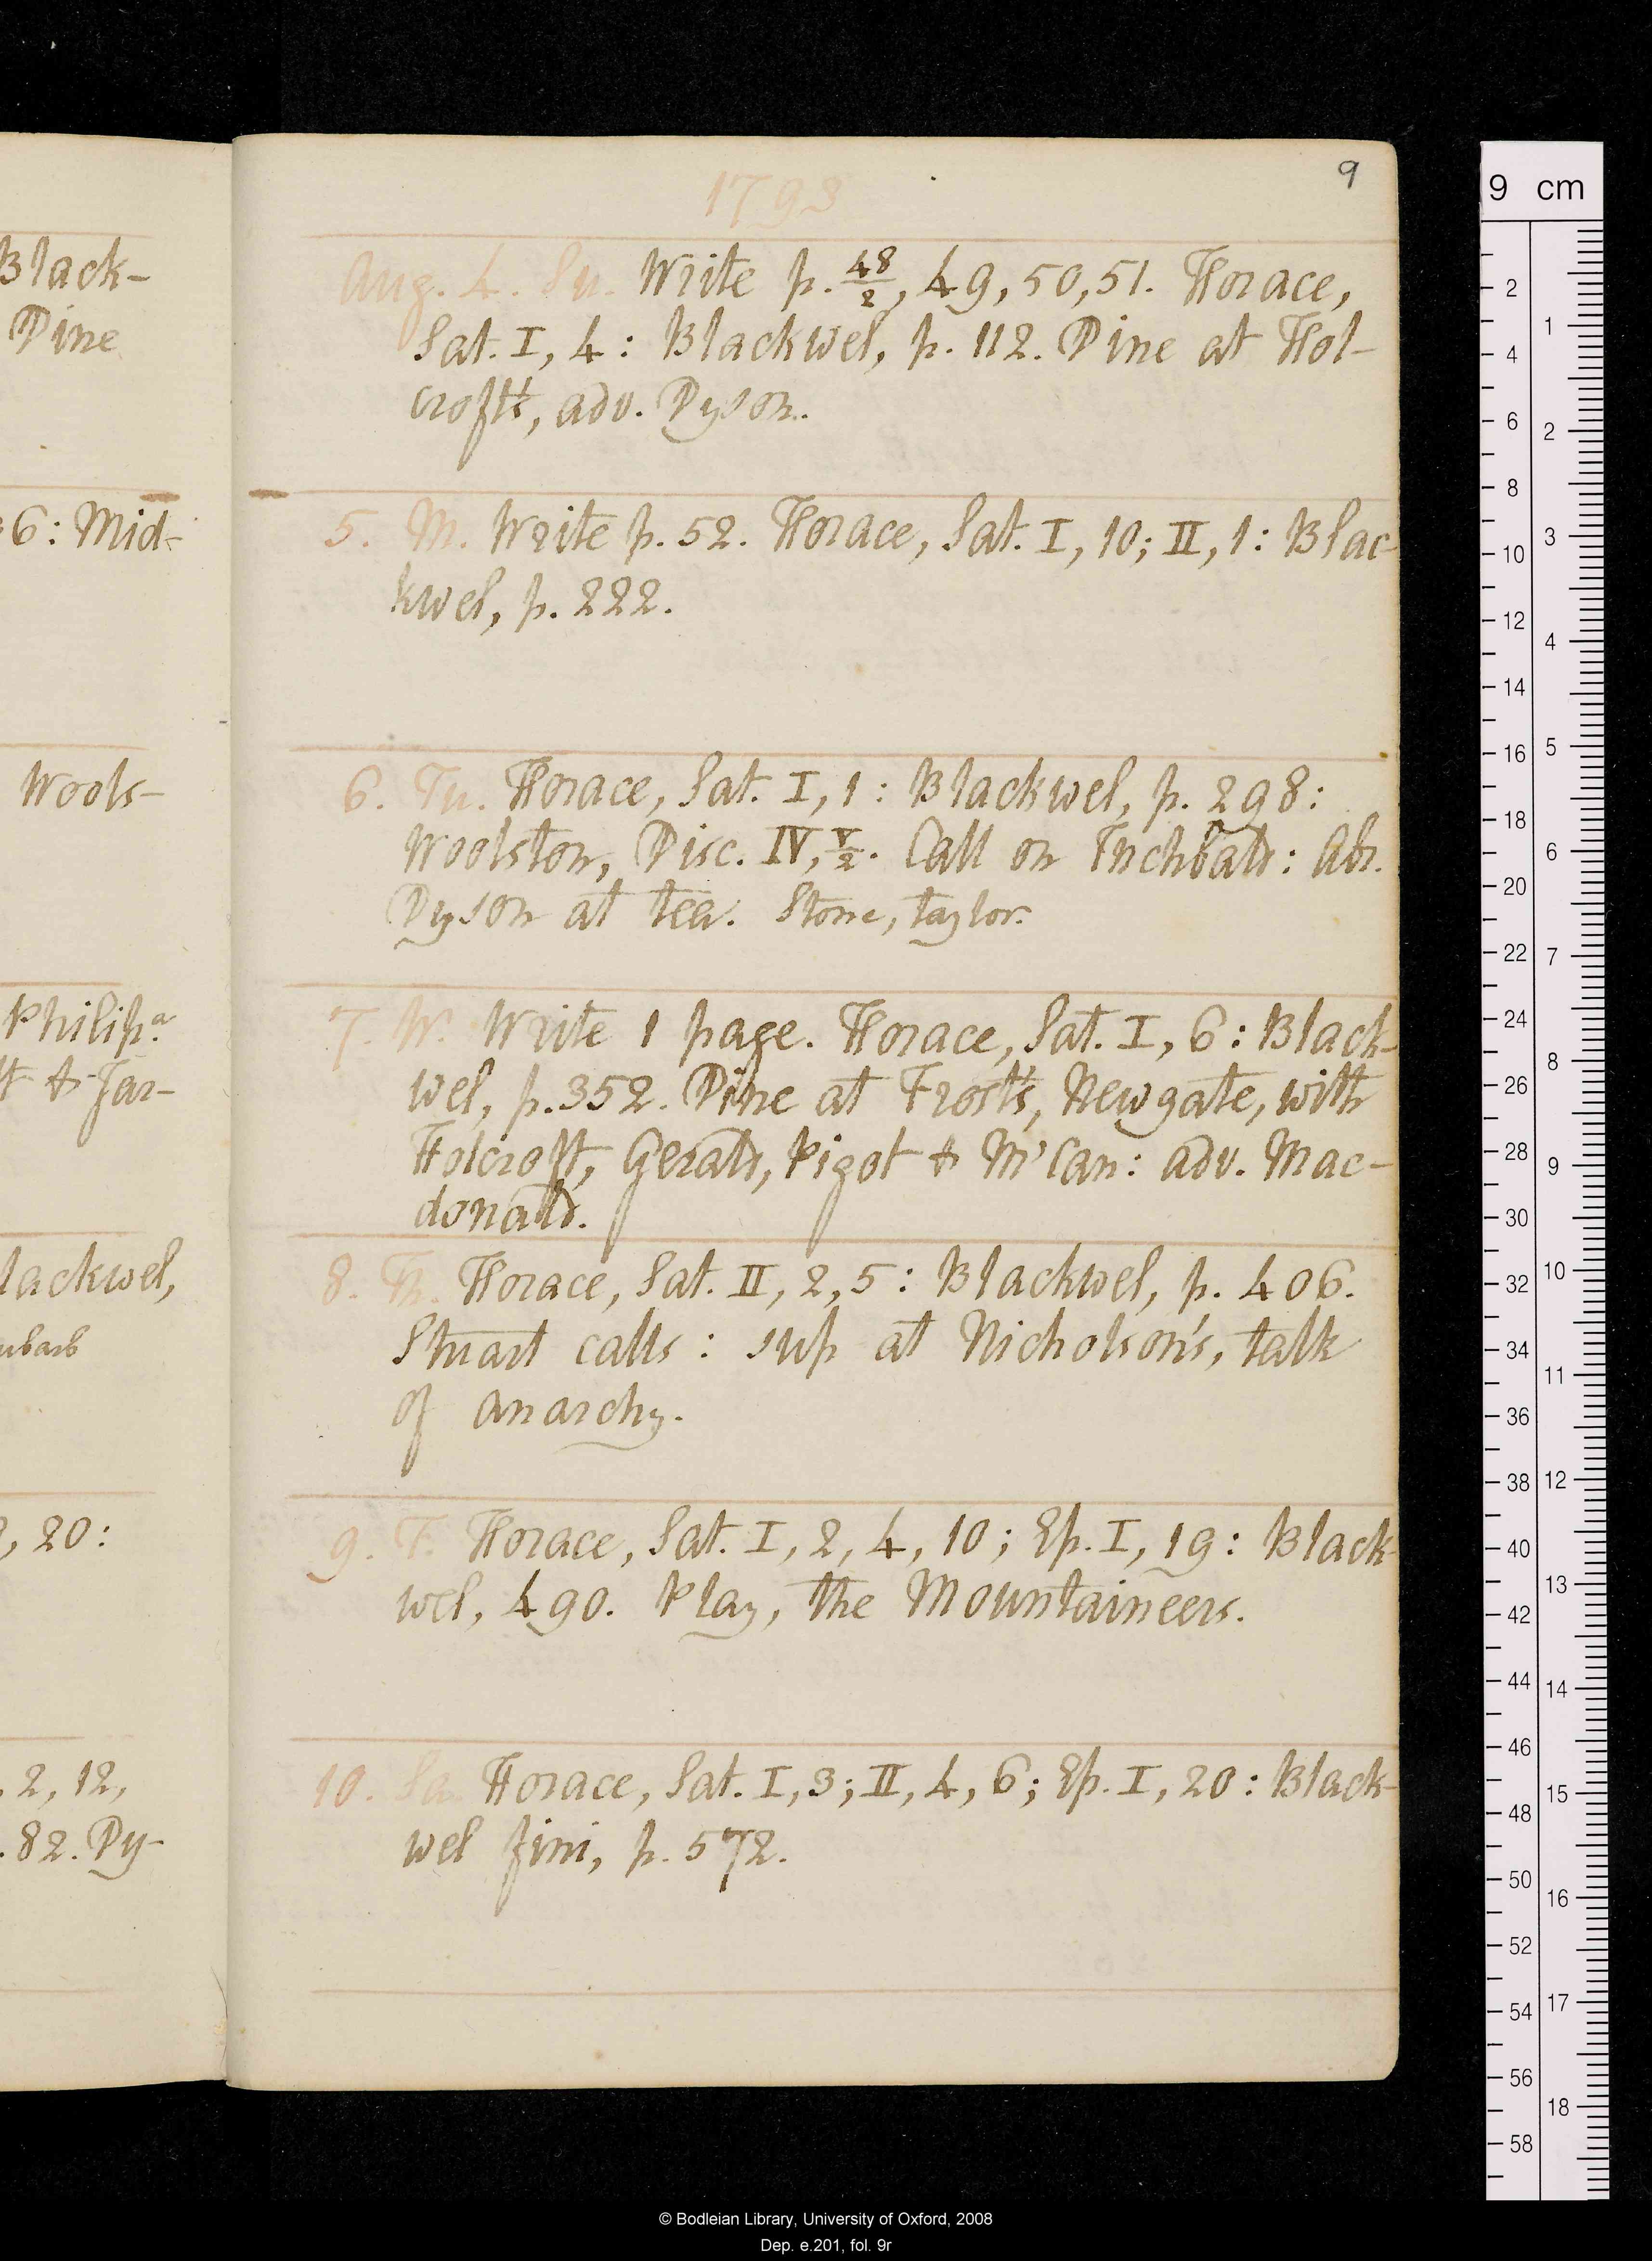 Black-
Dine
6: Mid-
Wools-
Philipª
& Jar-
lackwel,
ubarb
, 20:
. 2, 12,
. 82. Dy-
9
1793
Aug. 4. Su. Write p. 48/2, 49, 50, 51. Horace,
Sat. I, 4: Blackwel, p. 112. Dine at Hol-
croft's, adv. Dyson.
5. M. Write p. 52. Horace, Sat. I, 10; II, 1: Blac-
kwel, p. 222.
6. Tu. Horace, Sat. I, 1: Blackwel, p. 298:
Woolston, Disc. IV, V/2. Call on Inchbald: Ab.
Dyson at tea. Stone, taylor.
7. W. Write 1 page. Horace, Sat. I, 6: Black-
wel, p. 352. Dine at Frost's, Newgate, with
Holcroft, Gerald, Pigot & M'Can: adv. Mac-
donald.
8. Th. Horace, Sat. II, 2, 5: Blackwel, p. 406.
Stuart calls: sup at Nicholson's, talk
of anarchy.
9. F. Horace, Sat. I, 2, 4, 10; Ep. I, 19: Black-
wel, 490. Play, the Mountaineers.
10. Sa. Horace, Sat. I, 3; II, 4, 6; Ep. I, 20: Black-
wel fini, p. 572.
9 cm
2
4
6
8
10
12
14
16
18
20
22
24
26
28
30
32
34
36
38
40
42
44
46
48
50
52
54
56
58
1
2
3
4
5
6
7
8
9
10
11
12
13
14
15
16
17
18
© Bodleian Library, University of Oxford, 2008
Dep. e.201, fol. 9r